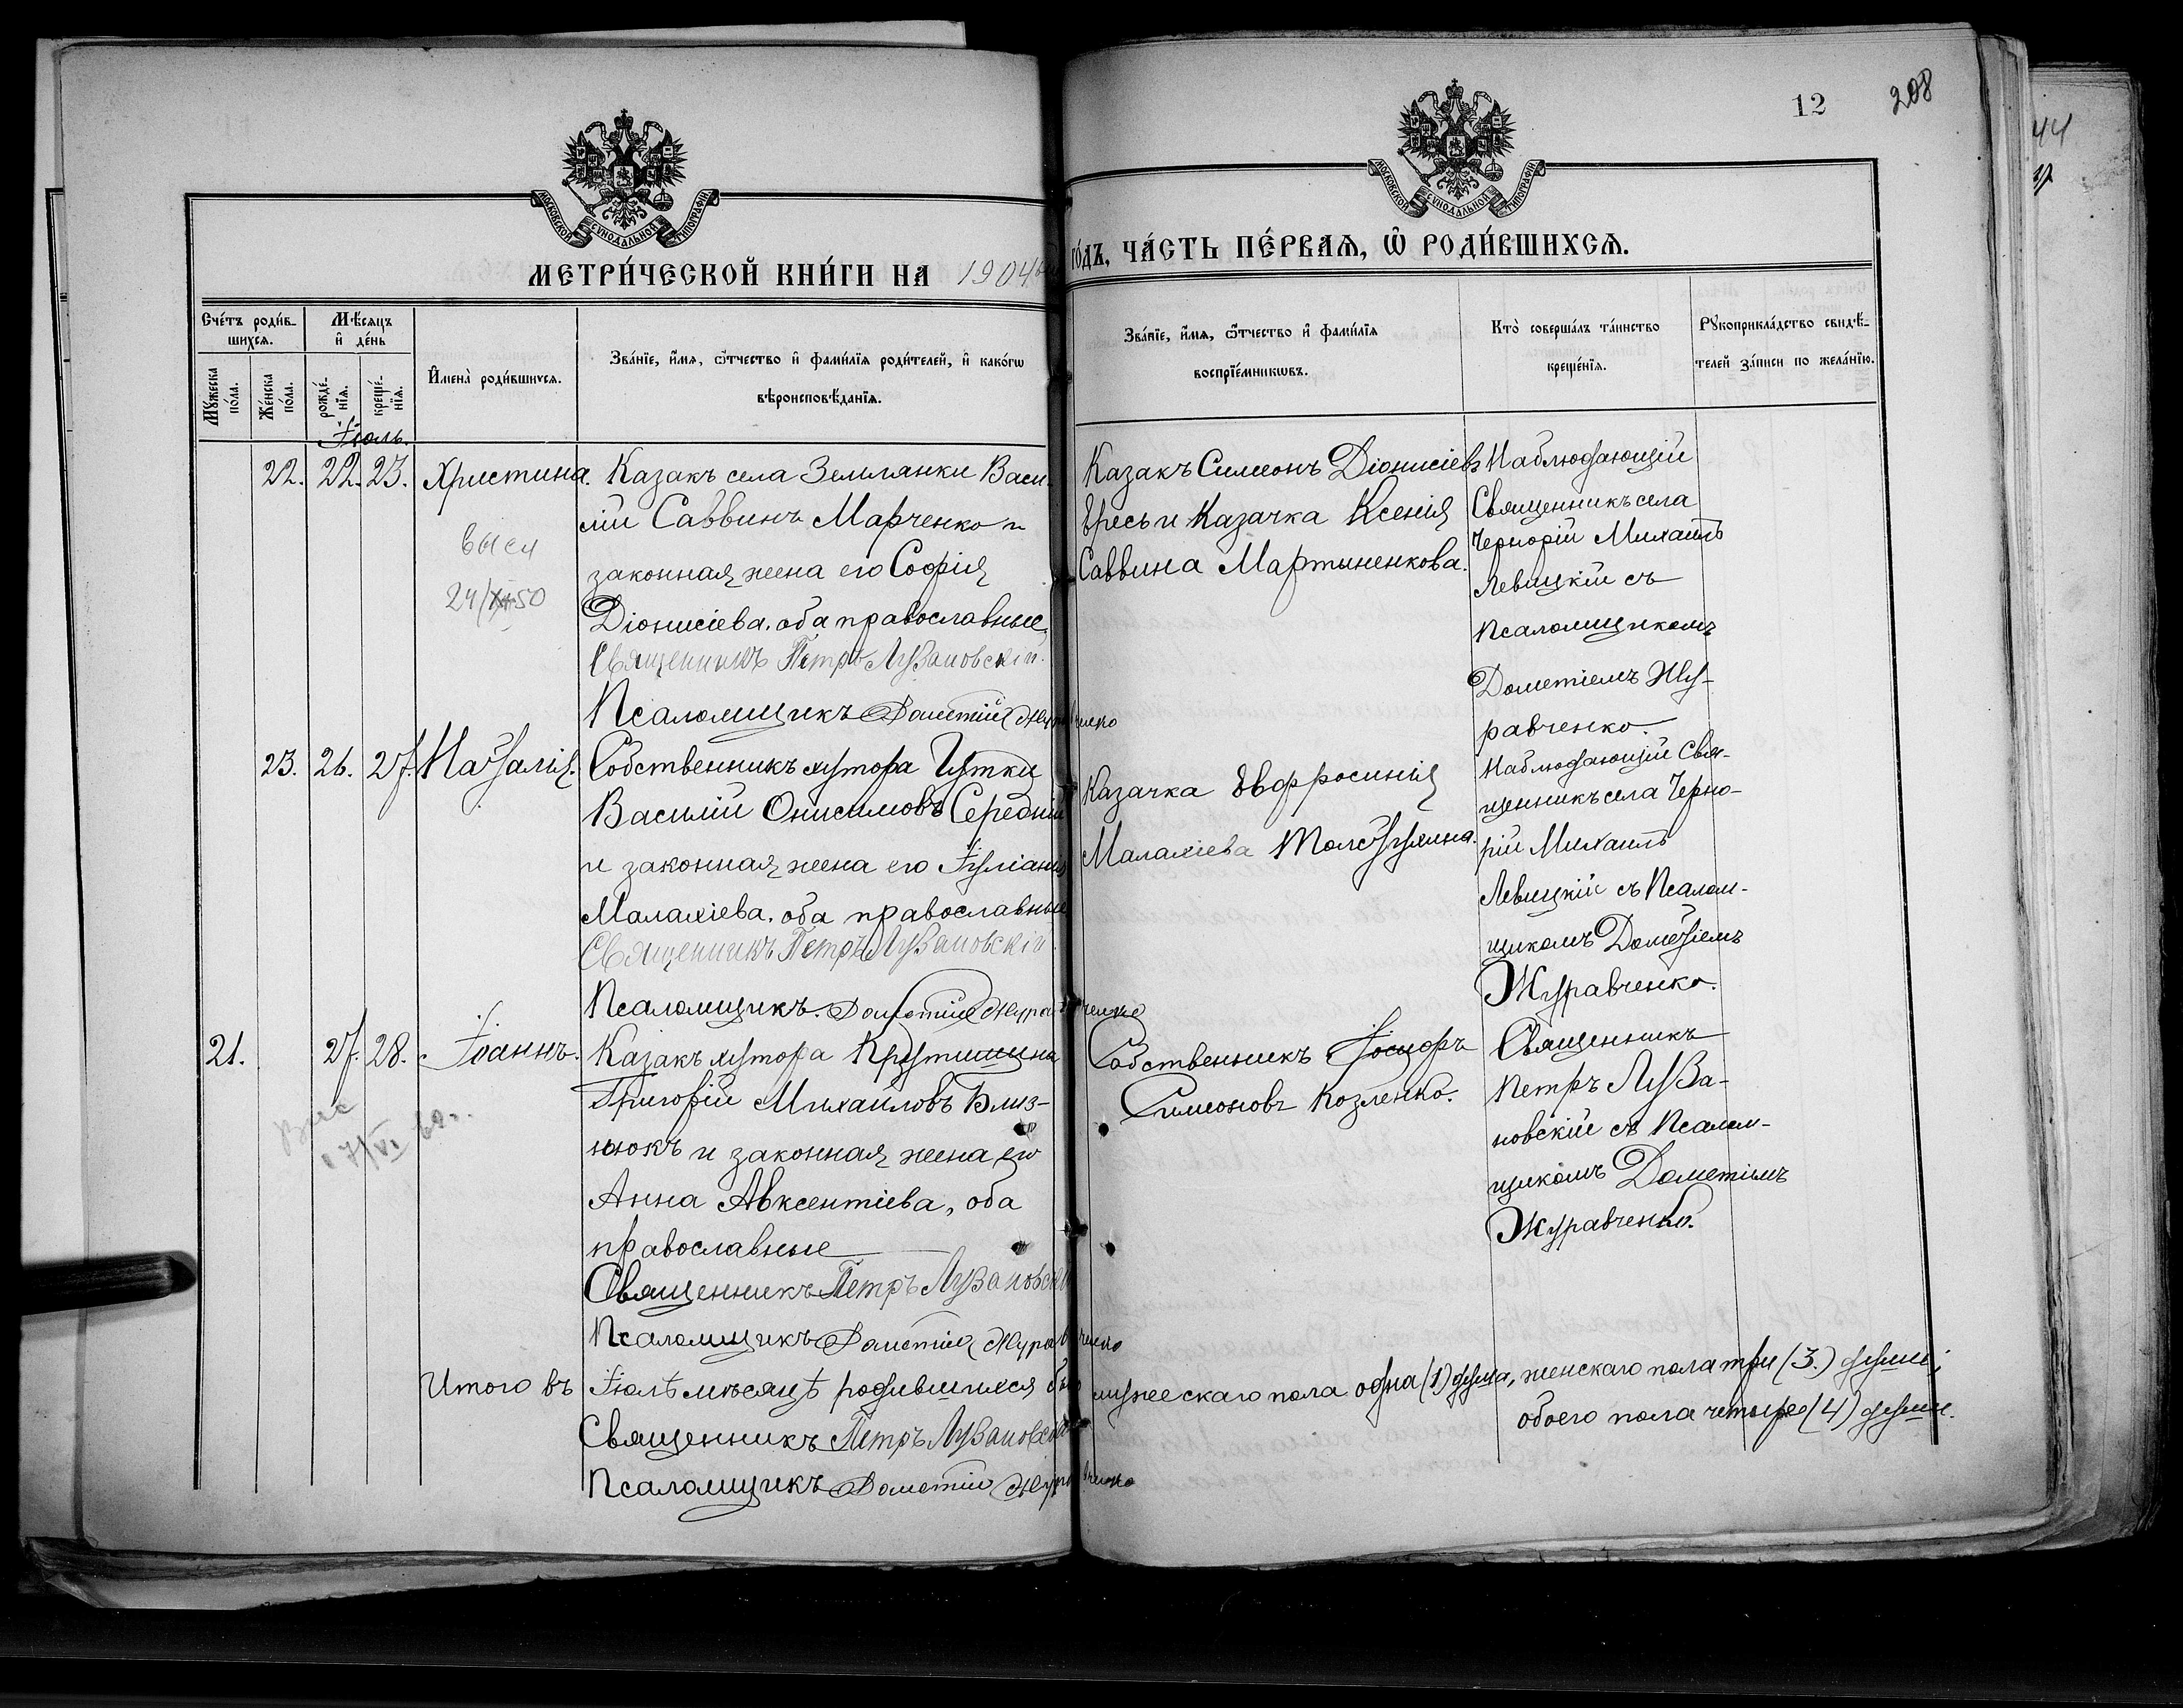 12
208
МОСКОВСКОЙ СѴНОДАЛЬНОЙ ТИПОГРАФІИ
МОСКОВСКОЙ СѴНОДАЛЬНОЙ ТИПОГРАФІИ
МЕТРИ́ЧЕСКОЙ КНИ́ГИ НА 1904
ГО́ДЪ, ЧА́СТЬ ПЕ́РВАЯ, Ѿ РОДИ́ВШИХСЯ.
Сче́тъ роди́в-
шихся.
Мꙋ́жеска по́ла.
Же́нска по́ла.
Мѣ́сяцъ
и҆ де́нь
рожде́-
нїя.
креще́-
нїя.
И҆мена̀ роди́вшихся.
Зва́нїе, и҆́мя, ѻ҆́тчество и҆ фами́лїя роди́телей, и҆ како́гѡ
вѣроисповѣ́данїя.
Зва́нїе, и҆́мя, ѻ҆́тчество и҆ фами́лїя
воспрїе́мникѡвъ.
Кто̀ соверша́лъ та́инство
креще́нїя.
Рꙋкоприкла́дство свидѣ́-
телей за́писи по жела́нїю.
Іюль.
22. 22. 23. Христина.
выси
24/XII 50
Казакъ села Землянки Васи-
лій Саввинъ Марченко и
законная жена его Софія
Діонисіева, оба православные.
Священникъ Петръ Лузановскій.
Псаломщикъ Дометій Журавченко
Казакъ Симеонъ Діонисіевъ
Ересь и Казачка Ксенія
Саввина Мартыненкова.
Наблюдающій
Священникъ села
Чернорій Михаилъ
Левицкій съ
Псаломщикомъ
Дометіемъ Жу-
равченко.
23. 26. 27. Наталія.
Собственникъ хутора Гутки
Василій Онисимовъ Середній
и законная жена его Іуліанія
Малахіева, оба православные
Священникъ Петръ Лузановскій.
Псаломщикъ Дометій Журавченко
Казачка Евфросинія
Малахіева
Наблюдающій Свя-
щенникъ села Черно-
рій Михаилъ
Левицкій съ Псалом-
щикомъ Дометіемъ
Журавченко.
21. 27. 28. Іоаннъ.
17/VI 60 г.
Казакъ хутора
Григорій Михаиловъ Близ-
нюкъ и законная жена его
Анна Авксентіева, оба
православные
Священникъ Петръ Лузановскій
Псаломщикъ Дометій Журавченко
Собственникъ Іосифъ
Симеоновъ Козленко.
Священникъ
Петръ Луза-
новскій съ Псалом-
щикомъ Дометіемъ
Журавченко.
Итого въ Іюлѣ мѣсяцѣ родившихся было мужескаго пола одна (1) душа, женскаго пола три (3.) души,
обоего пола четыре (4) души.
Священникъ Петръ Лузановскій
Псаломщикъ Дометій Журавченко
44